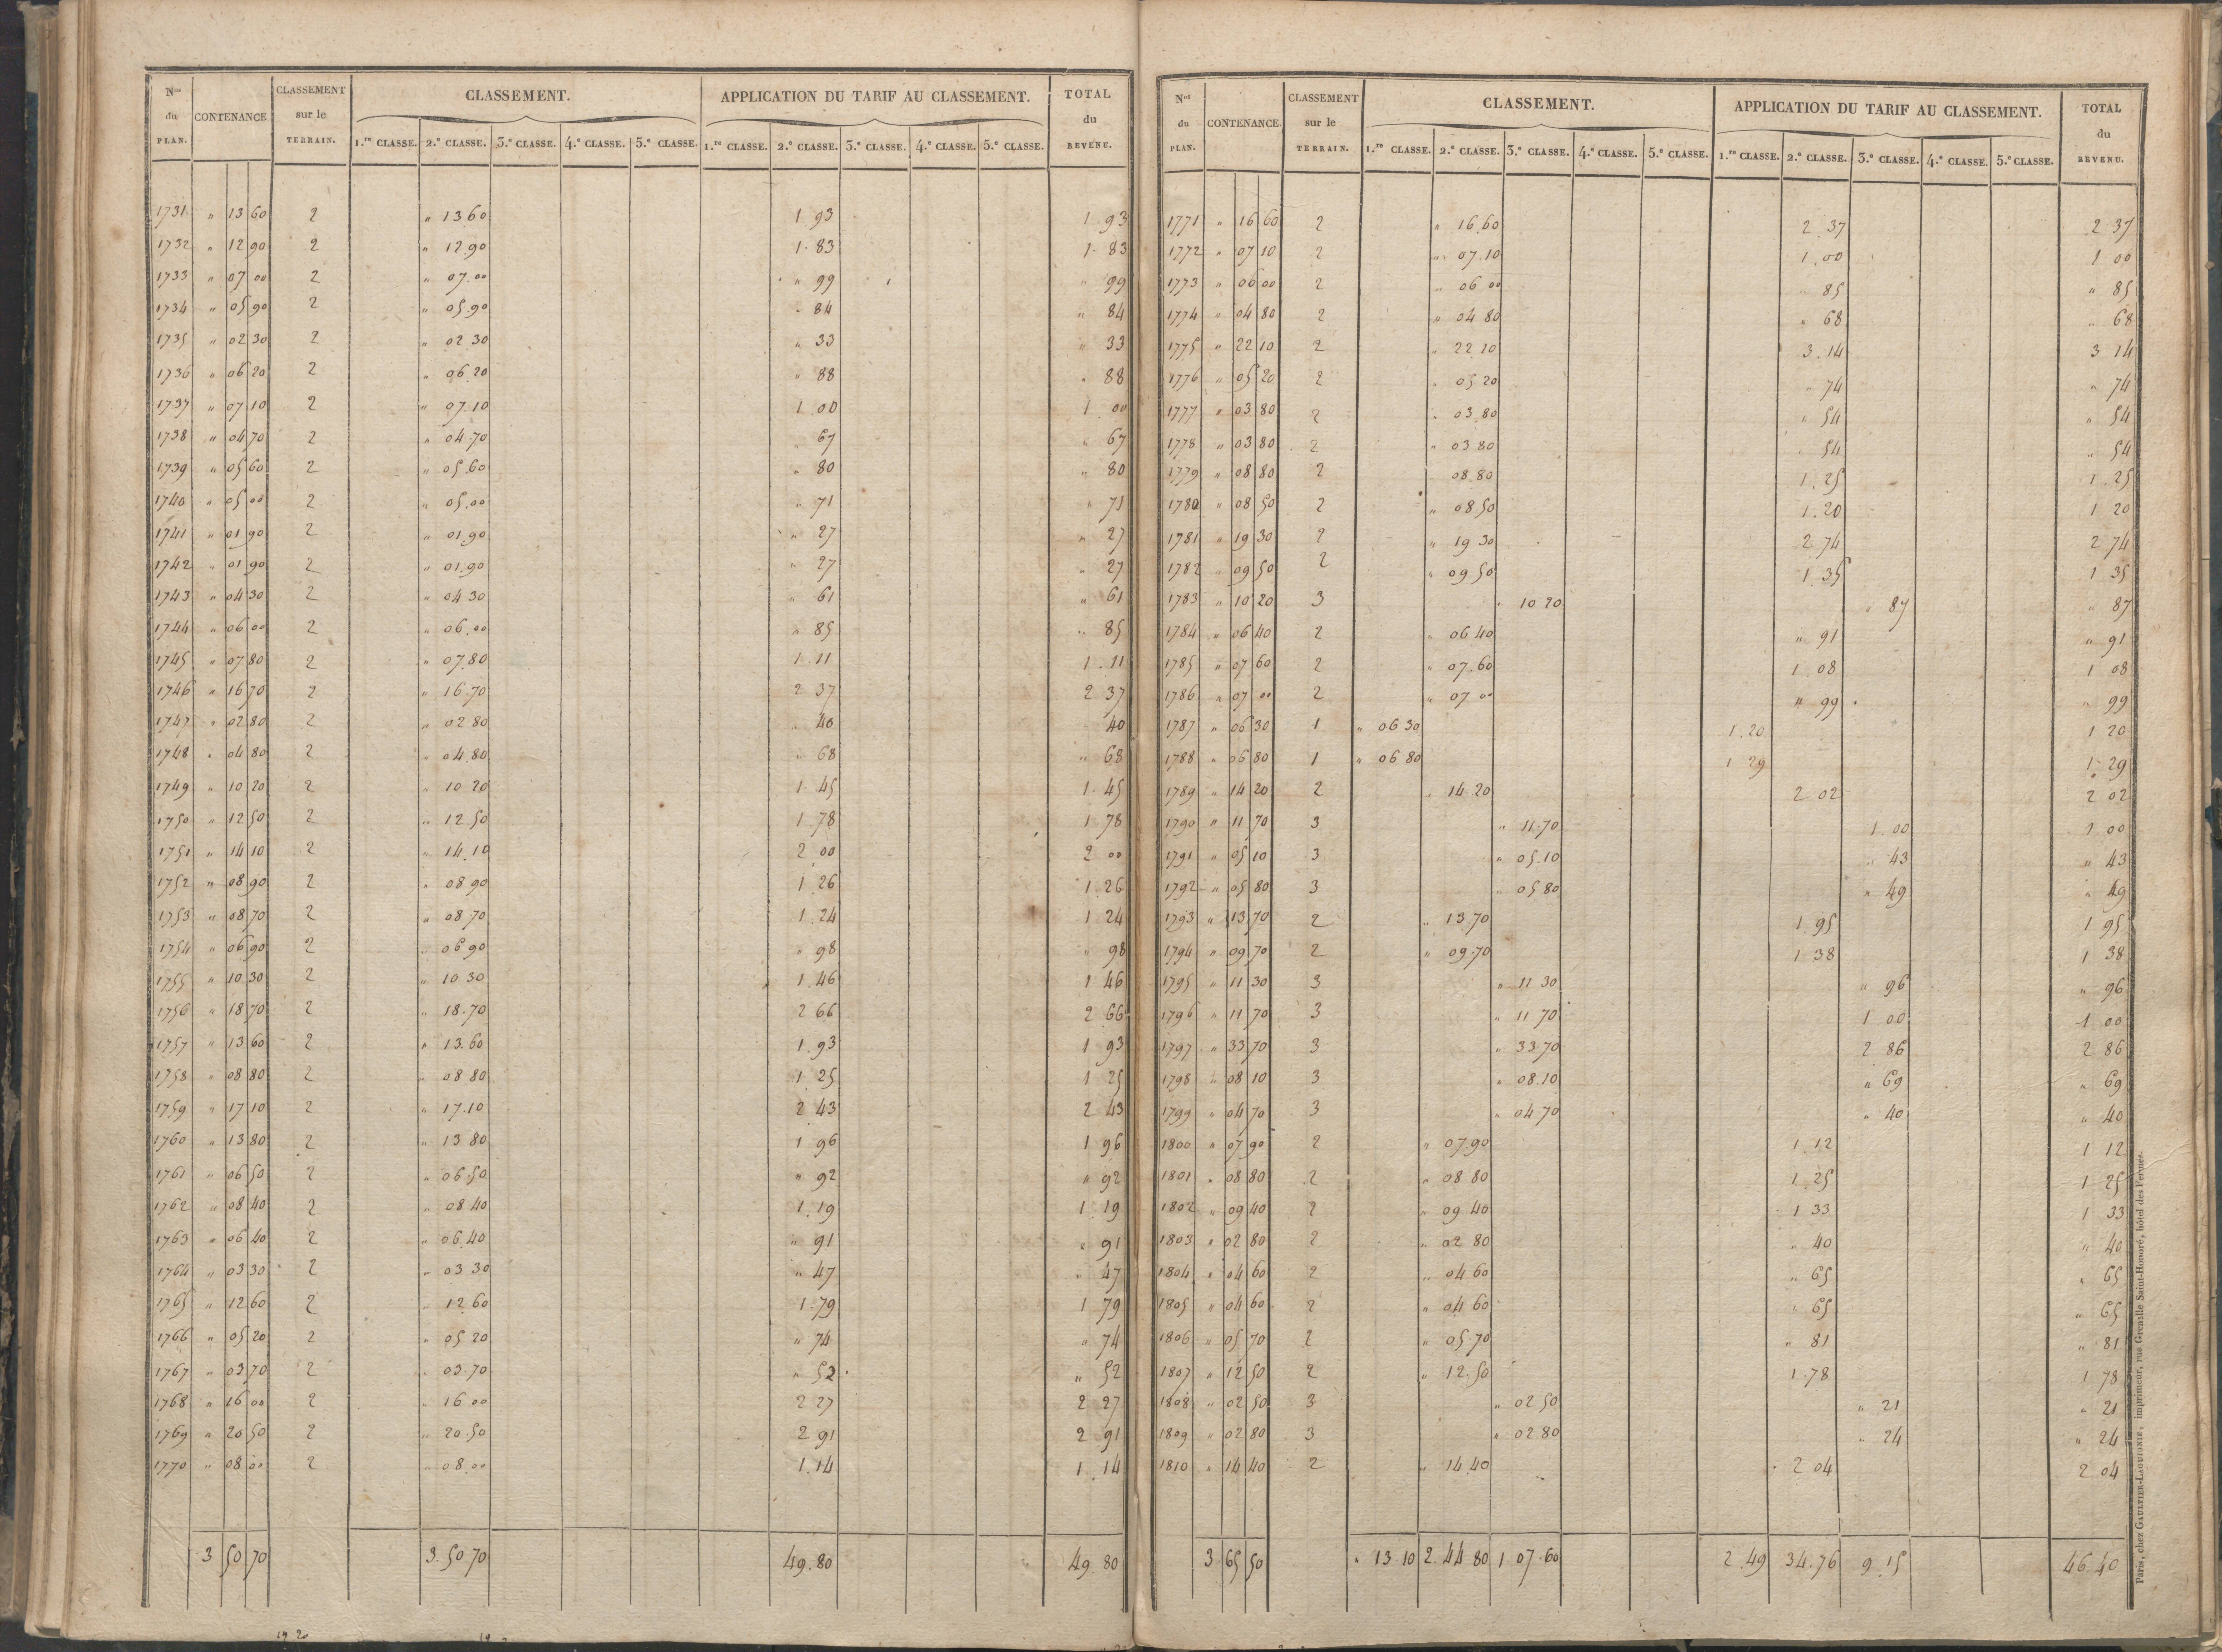 Nos du PLAN. CONTENANCE. CLASSEMENT sur le TERRAIN. CLASSEMENT. APPLICATION DU TARIF AU CLASSEMENT. TOTAL du REVENU.
1.re CLASSE. 2.e CLASSE. 3.e CLASSE. 4.e CLASSE. 5.e CLASSE. 1.re CLASSE. 2.e CLASSE. 3.e CLASSE. 4.e CLASSE. 5.e CLASSE.
1731 " 13 60 2 " 13 60 1 93 1 93
1732 " 12 90 2 " 12 90 1 83 1 83
1733 " 07 00 2 " 07 00 " 99 " 99
1734 " 05 90 2 " 05 90 " 84 " 84
1735 " 02 30 2 " 02 30 " 33 " 33
1736 " 06 20 2 " 06 20 " 88 " 88
1737 " 07 10 2 " 07 10 1 00 1 00
1738 " 04 70 2 " 04 70 " 67 " 67
1739 " 05 60 2 " 05 60 " 80 " 80
1740 " 05 00 2 " 05 00 " 71 " 71
1741 " 01 90 2 " 01 90 " 27 " 27
1742 " 01 90 2 " 01 90 " 27 " 27
1743 " 04 30 2 " 04 30 " 61 " 61
1744 " 06 00 2 " 06 00 " 85 " 85
1745 " 07 80 2 " 07 80 1 11 1 11
1746 " 16 70 2 " 16 70 2 37 2 37
1747 " 02 80 2 " 02 80 " 40 40
1748 " 04 80 2 " 04 80 " 68 " 68
1749 " 10 20 2 " 10 20 1 45 1 45
1750 " 12 50 2 " 12 50 1 78 1 78
1751 " 14 10 2 " 14 10 2 00 2 00
1752 " 08 90 2 " 08 90 1 26 1 26
1753 " 08 70 2 " 08 70 1 24 1 24
1754 " 06 90 2 " 06 90 " 98 " 98
1755 " 10 30 2 " 10 30 1 46 1 46
1756 " 18 70 2 " 18 70 2 66 2 66
1757 " 13 60 2 " 13 60 1 93 1 93
1758 " 08 80 2 " 08 80 1 25 1 25
1759 " 17 10 2 " 17 10 2 43 2 43
1760 " 13 80 2 " 13 80 1 96 1 96
1761 " 06 50 2 " 06 50 " 92 " 92
1762 " 08 40 2 " 08 40 1 19 1 19
1763 " 06 40 2 " 06 40 " 91 " 91
1764 " 03 30 2 " 03 30 " 47 " 47
1765 " 12 60 2 " 12 60 1 79 1 79
1766 " 05 20 2 " 05 20 " 74 " 74
1767 " 03 70 2 " 03 70 " 52 " 52
1768 " 16 00 2 " 16 00 2 27 2 27
1769 " 20 50 2 " 20 50 2 91 2 91
1770 " 08 00 2 " 08 00 1 14 1 14
3 50 70 3 50 70 49 80 49 80
Nos du PLAN. CONTENANCE. CLASSEMENT sur le TERRAIN. CLASSEMENT. APPLICATION DU TARIF AU CLASSEMENT. TOTAL du REVENU.
1.re CLASSE. 2.e CLASSE. 3.e CLASSE. 4.e CLASSE. 5.e CLASSE. 1.re CLASSE. 2.e CLASSE. 3.e CLASSE. 4.e CLASSE. 5.e CLASSE.
1771 " 16 60 2 " 16 60 2 37 2 37
1772 " 07 10 2 " 07 10 1 00 1 00
1773 " 06 00 2 " 06 00 85 " 85
1774 " 04 80 2 " 04 80 " 68 " 68
1775 " 22 10 2 " 22 10 3 14 3 14
1776 " 05 20 2 " 05 20 " 74 " 74
1777 " 03 80 2 " 03 80 " 54 " 54
1778 " 03 80 2 " 03 80 " 54 " 54
1779 " 08 80 2 08 80 1 25 1 25
1780 " 08 50 2 " 08 50 1 20 1 20
1781 " 19 30 2 " 19 30 2 74 2 74
1782 " 09 50 2 " 09 50 1 35 1 35
1783 " 10 20 3 " 10 20 " 87 " 87
1784 " 06 40 2 " 06 40 " 91 " 91
1785 " 07 60 2 " 07 60 1 08 1 08
1786 " 07 00 2 " 07 00 " 99 " 99
1787 " 06 30 1 " 06 30 1 20 1 20
1788 " 06 80 1 " 06 80 1 29 1 29
1789 " 14 20 2 " 14 20 2 02 2 02
1790 " 11 70 3 " 11 70 1 00 1 00
1791 " 05 10 3 " 05 10 " 43 " 43
1792 " 05 80 3 " 05 80 " 49 " 49
1793 " 13 70 2 " 13 70 1 95 1 95
1794 " 09 70 2 " 09 70 1 38 1 38
1795 " 11 30 3 " 11 30 " 96 " 96
1796 " 11 70 3 " 11 70 1 00 1 00
1797 " 33 70 3 " 33 70 2 86 2 86
1798 " 08 10 3 " 08 10 " 69 " 69
1799 " 04 70 3 " 04 70 " 40 " 40
1800 " 07 90 2 " 07 90 1 12 1 12
1801 " 08 80 2 " 08 80 1 25 1 25
1802 " 09 40 2 " 09 40 1 33 1 33
1803 " 02 80 2 " 02 80 " 40 " 40
1804 " 04 60 2 " 04 60 " 65 " 65
1805 " 04 60 2 " 04 60 " 65 " 65
1806 " 05 70 2 " 05 70 " 81 " 81
1807 " 12 50 2 " 12 50 1 78 1 78
1808 " 02 50 3 " 02 50 " 21 " 21
1809 " 02 80 3 " 02 80 " 24 " 24
1810 " 14 40 2 " 14 40 2 04 2 04
3 65 50 " 13 10 2 44 80 1 07 60 2 49 34 76 9 15 46 40
Paris, chez GAULTIER-LAGUIONIE, imprimeur, rue Grenelle Saint-Honoré, hôtel des Fermes.